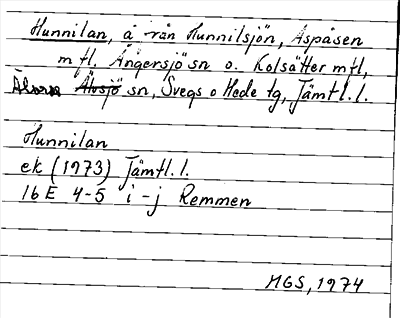 Hunnilan, å från Hunnilsjön, Aspåsen
m fl, Ängersjö sn o. Kolsätter m fl,
Älvros Älvsjö sn, Svegs o Hede tg, Jämtl. l.
Hunnilan
ek (1973) Jämtl. l.
16 E 4-5 i-j Remmen
MGS, 1974